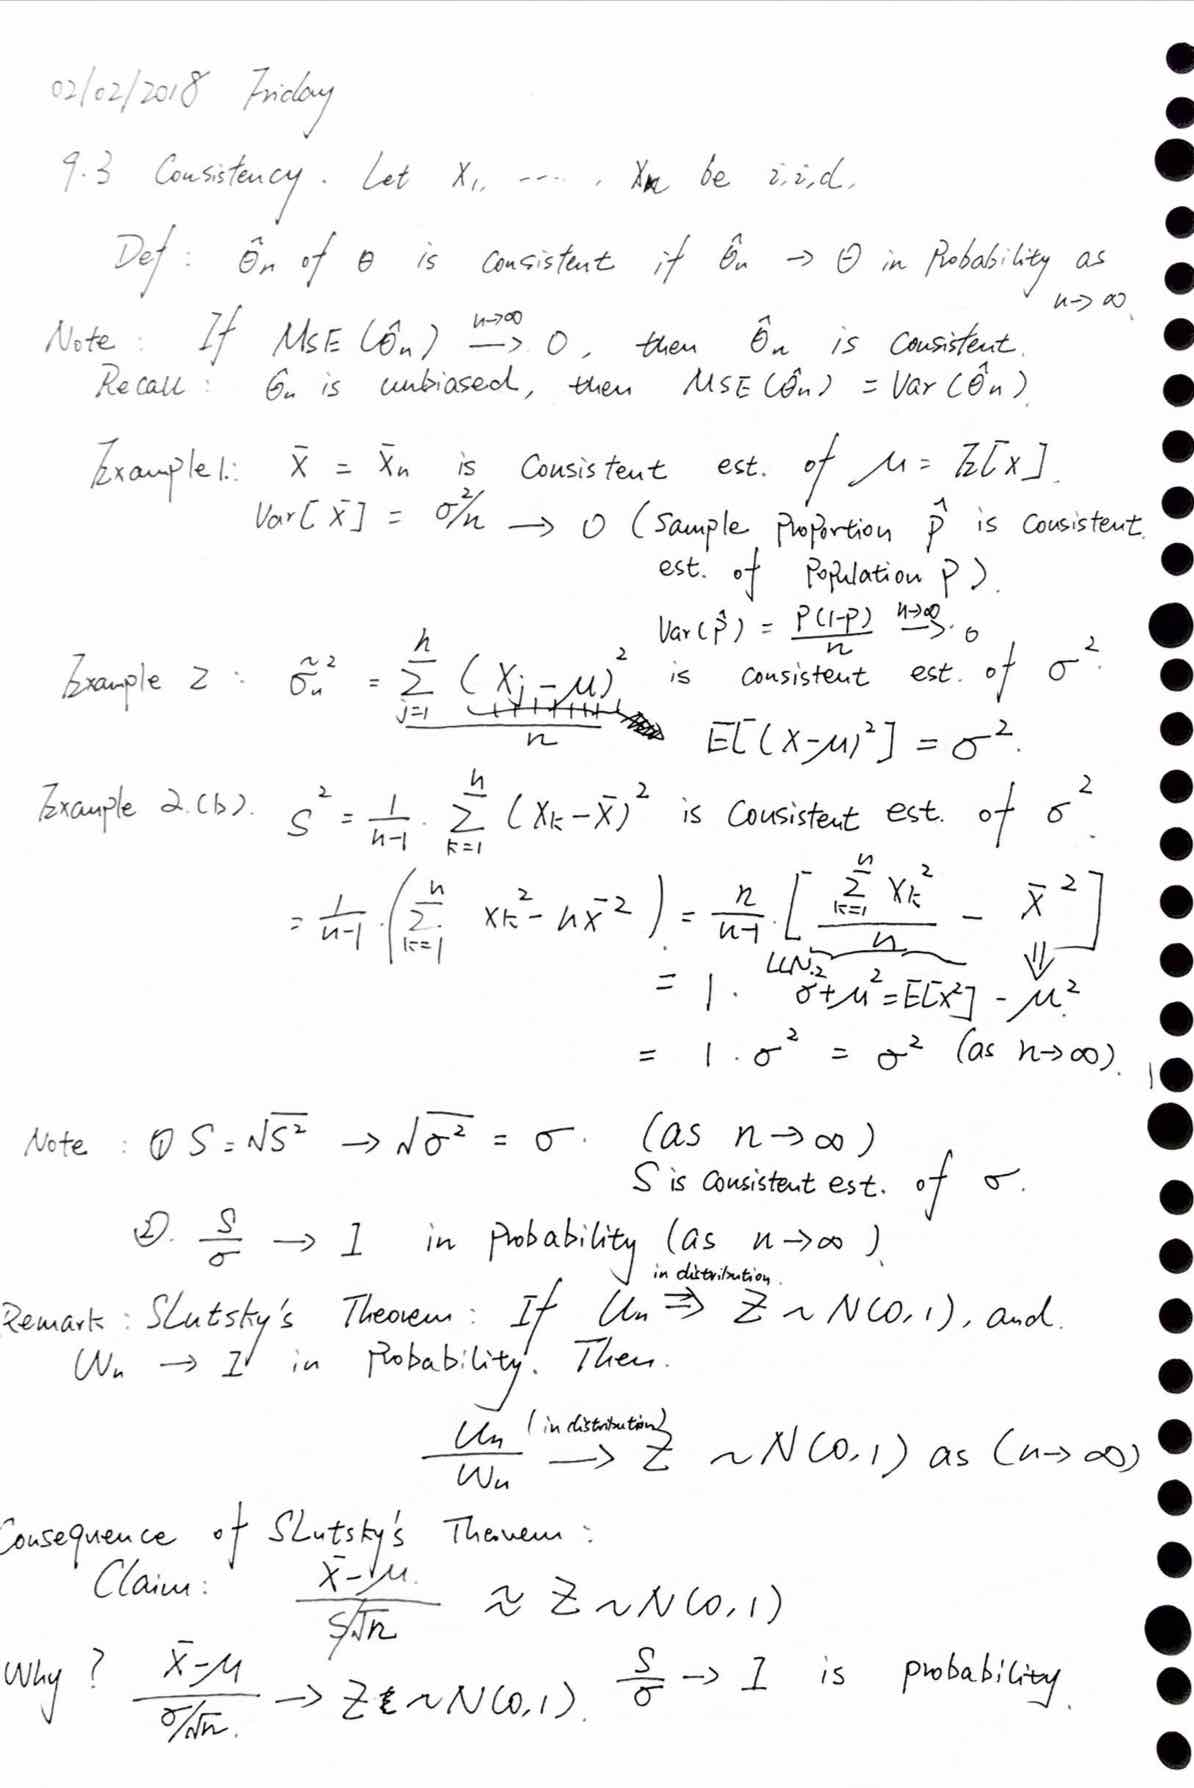 02/02/2018 Friday
9.3 Consistency. Let X₁, ...., Xn be i.i.d.
Def: θ̂n of θ is consistent if θ̂n → θ in Probability as n→∞.
Note: If MSE(θ̂n) →(n→∞) 0, then θ̂n is consistent.
Recall: θ̂n is unbiased, then MSE(θ̂n) = Var(θ̂n).
Example 1.: X̄ = X̄n is consistent est. of μ = E[X].
Var[X̄] = σ²/n → 0 (Sample Proportion p̂ is consistent.
est. of Population P).
Var(p̂) = P(1-P)/n →(n→∞) 0
Example 2: σ̃n² = Σ_{j=1}^{n} (Xj-μ)² / n is consistent est. of σ².
E[(X-μ)²] = σ².
Example 2.(b). S² = 1/(n-1) · Σ_{k=1}^{n} (Xk-X̄)² is consistent est. of σ².
= 1/(n-1) · (Σ_{k=1}^{n} Xk² - nX̄²) = n/(n-1) · [Σ_{k=1}^{n} Xk² / n - X̄²]
LLN ⇓
= 1. σ²+μ² = E[X²] - μ².
= 1 · σ² = σ² (as n→∞).
Note: ① S = √S² → √σ² = σ. (as n→∞)
S is consistent est. of σ.
②. S/σ → 1 in probability (as n→∞).
Remark: Slutsky's Theorem: If Un ⇒(in distribution.) Z ~ N(0,1), and.
Wn → 1 in Probability. Then.
Un/Wn →(in distribution) Z ~ N(0,1) as (n→∞)
Consequence of Slutsky's Theorem:
Claim: (X̄-μ)/(S/√n) ≈ Z ~ N(0,1)
Why? (X̄-μ)/(σ/√n) → Z ~ N(0,1). S/σ → 1 is probability.